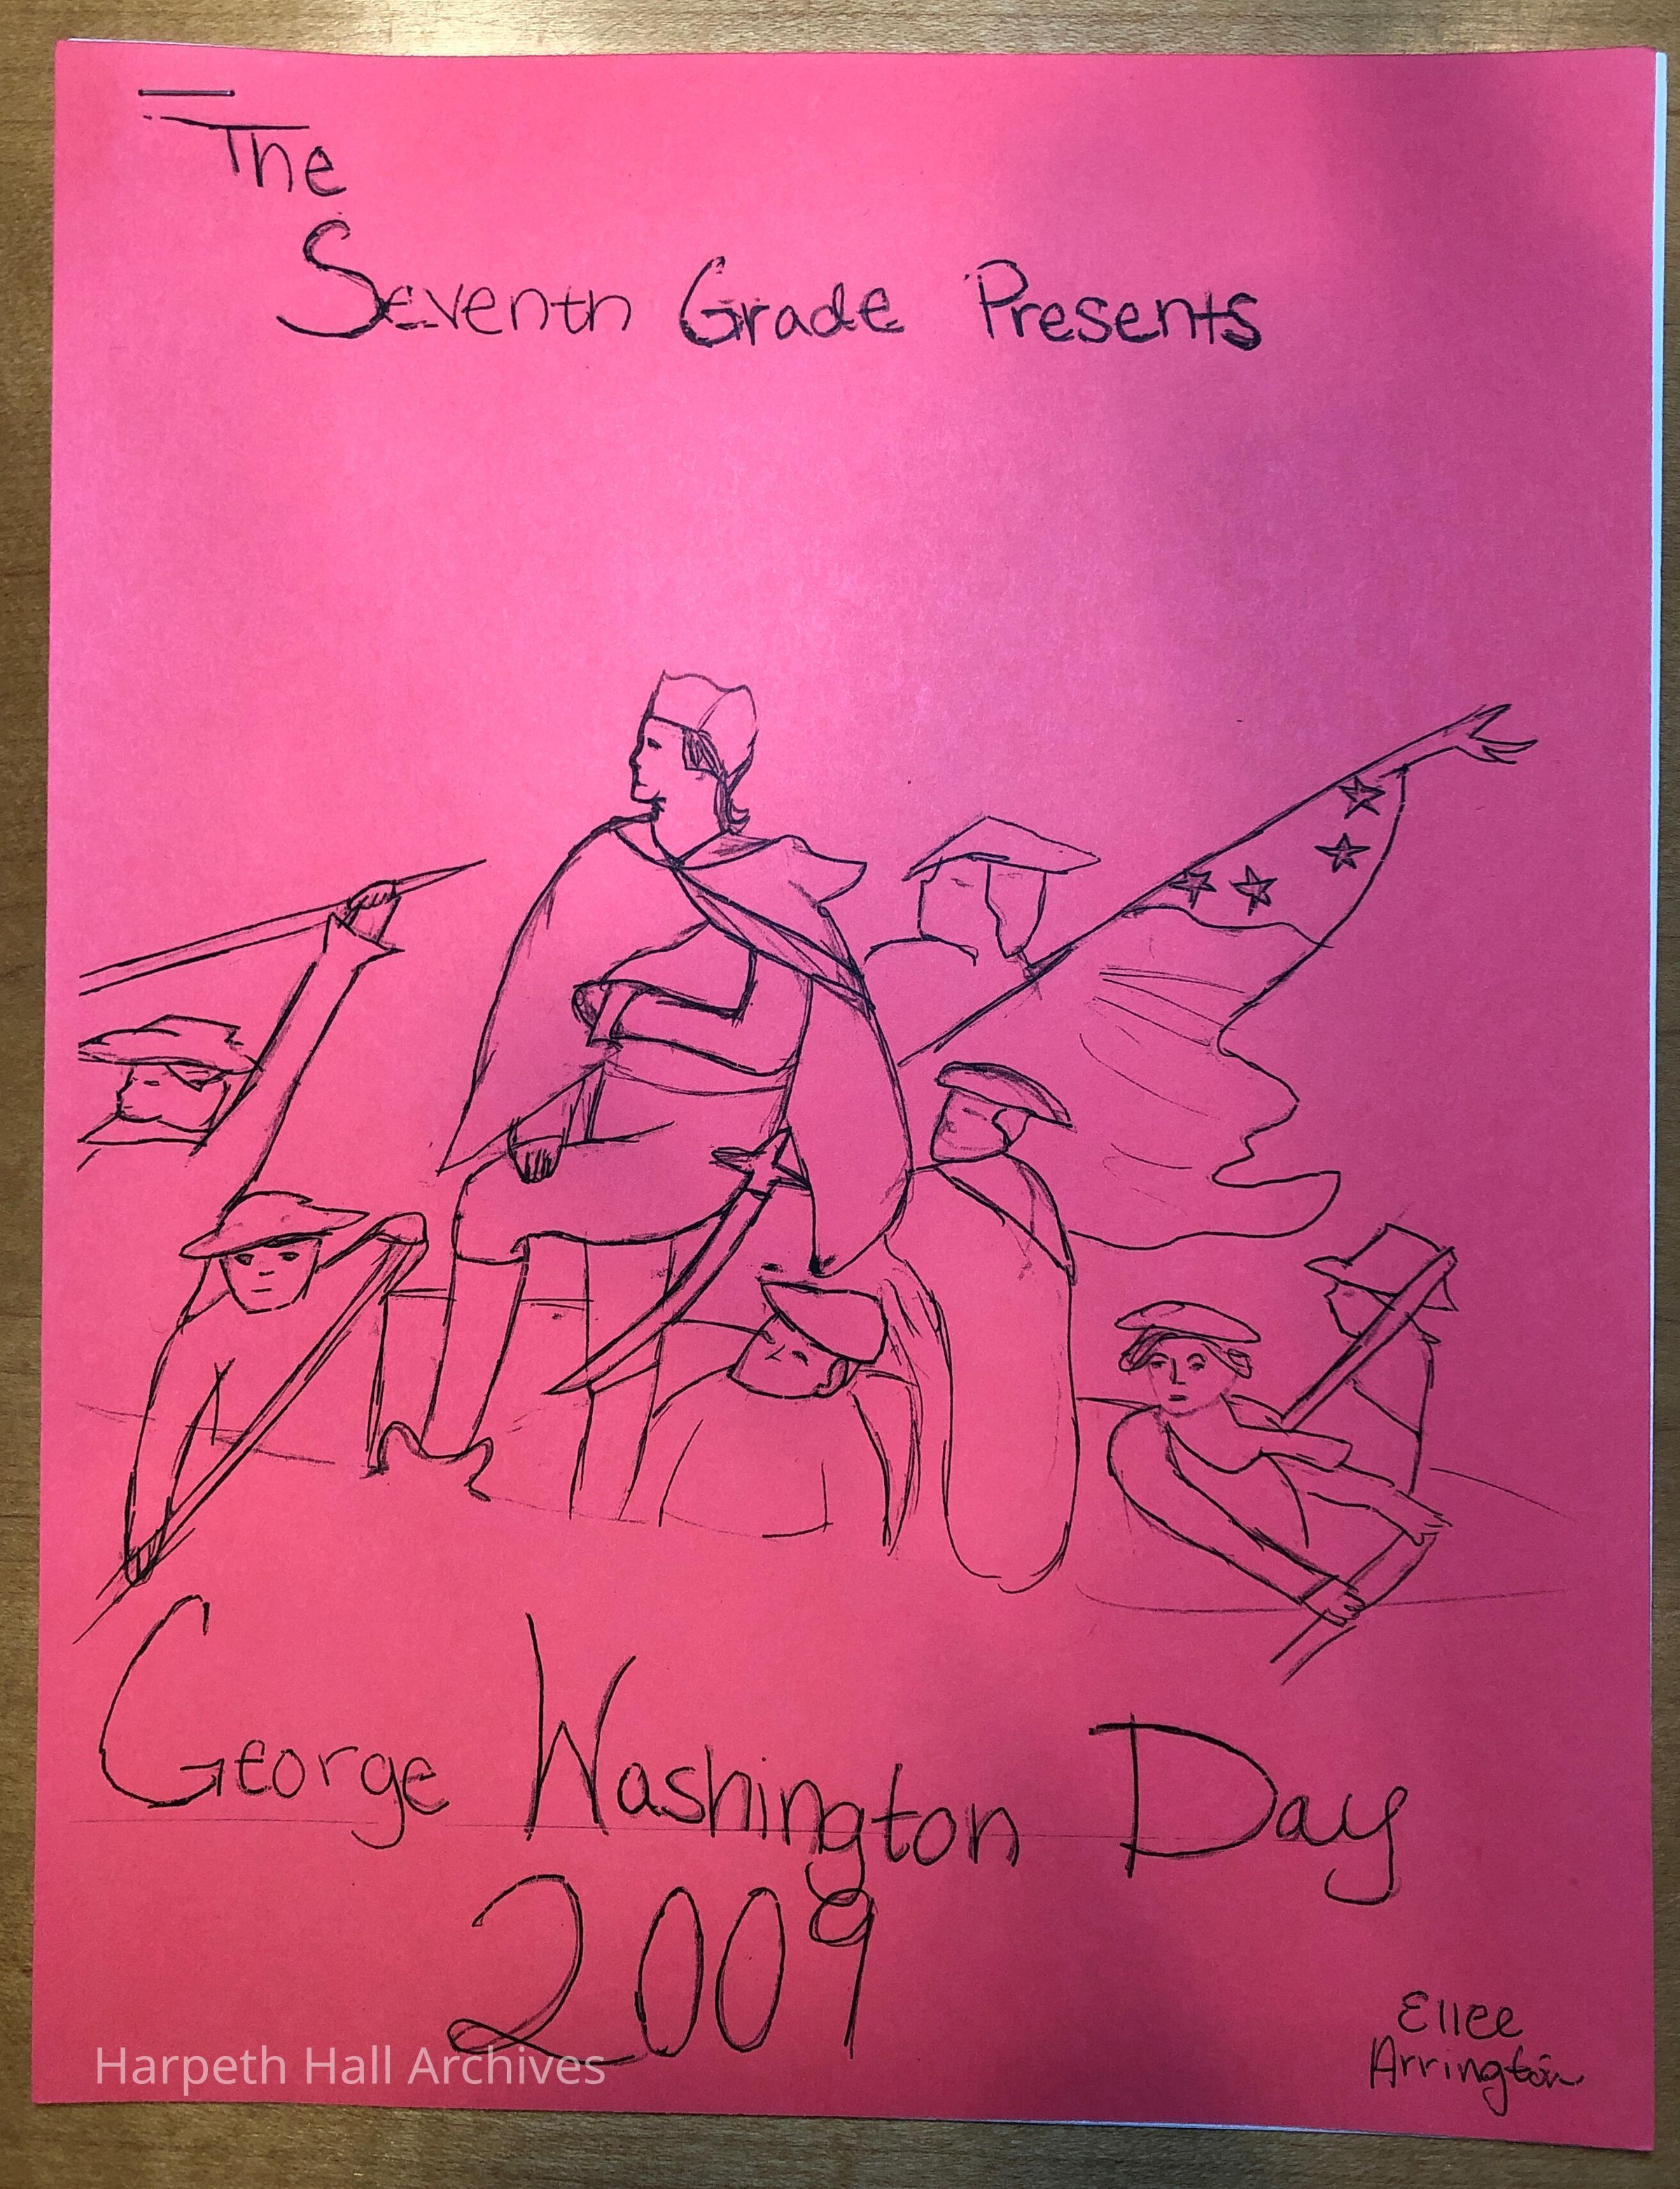 The
Seventh Grade Presents
George Washington Day
2009
Ellee
Arrington
Harpeth Hall Archives